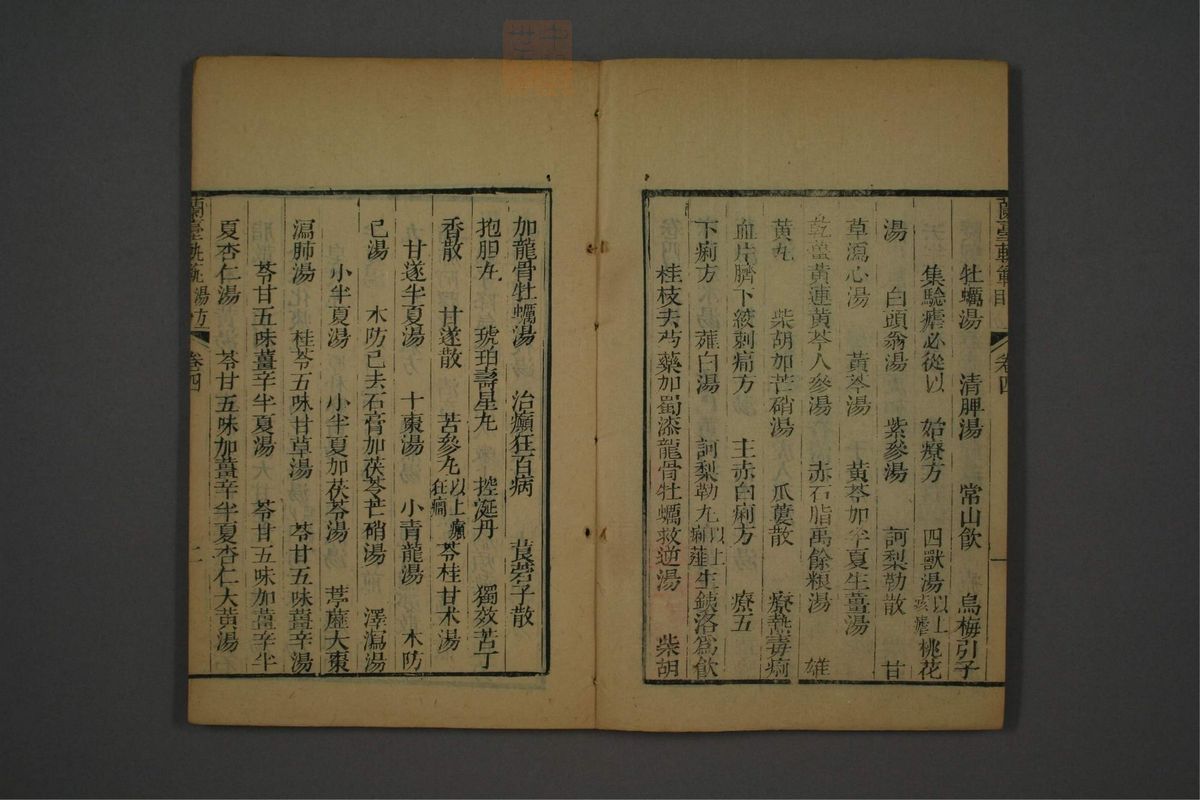 蘭臺軌範目 卷四 一
牡蠣湯 清脾湯 常山飲 烏梅引子
集驗瘧必從以 始療方 四獸湯以上痰瘧 桃花
湯 白頭翁湯 紫參湯 訶梨勒散 甘
草瀉心湯 黃芩湯 黃芩加半夏生薑湯
乾薑黃連黃芩人參湯 赤石脂禹餘粮湯 雄
黃丸 柴胡加芒硝湯 瓜蔞散 療熱毒痢
血片臍下絞刺痛方 主赤白痢方 療五
下痢方 薤白湯 訶梨勒丸以上痢 生鐵洛爲飲
桂枝去芍藥加蜀漆龍骨牡蠣救逆湯 柴胡
加龍骨牡蠣湯 治癲狂百病 莨菪子散
抱胆丸 琥珀壽星丸 控涎丹 獨效苦丁
香散 甘遂散 苦參丸以上癲狂癇 苓桂甘术湯
甘遂半夏湯 十棗湯 小青龍湯 木防
已湯 木防已去石膏加茯苓芒硝湯 澤瀉湯
小半夏湯 小半夏加茯苓湯 葶藶大棗
瀉肺湯 桂苓五味甘草湯 苓甘五味薑辛湯
苓甘五味薑辛半夏湯 苓甘五味加薑辛半
夏杏仁湯 苓甘五味加薑辛半夏杏仁大黃湯
蘭臺軌範湯方 卷四 二